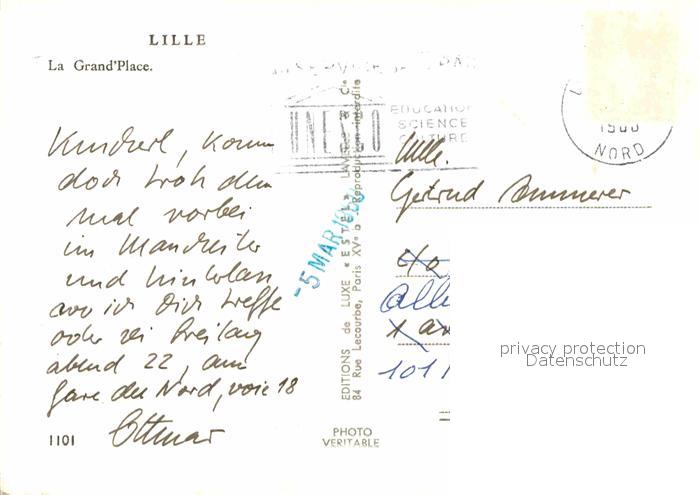 LILLE
La Grand'Place.
Kinderl, komm
doch trotzdem
mal vorbei
im
und hinterlass
wo ich Dich treffe
oder sei Freitag
abend 22, am
Gare du Nord, voie 18
Ottmar
1101
UNESCO
EDUCATION
SCIENCE
CULTURE
NORD
-5 MAR 19
EDITIONS de LUXE « ESTEL » & Cie
84 Rue Lecourbe, Paris XVe Reproduction interdite
PHOTO
VERITABLE
Mlle.
Gertrud Ammerer
c/o
Alle
1011
privacy protection
Datenschutz